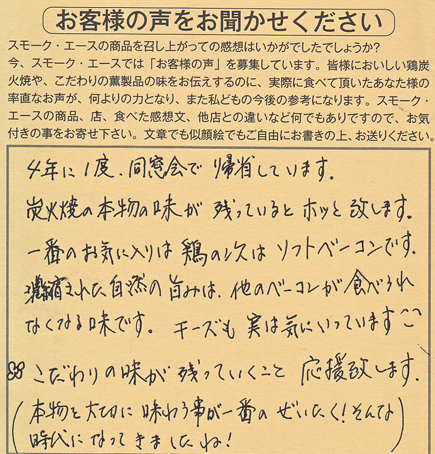 お客様の声をお聞かせください
スモーク・エースの商品を召し上がっての感想はいかがでしたでしょうか?
今、スモーク・エースでは「お客様の声」を募集しています。皆様においしい鶏炭
火焼や、こだわりの薫製品の味をお伝えするのに、実際に食べて頂いたあなた様の
率直なお声が、何よりの力となり、また私どもの今後の参考になります。スモーク・
エースの商品、店、食べた感想文、他店との違いなど何でもありですので、お気
付きの事をお寄せ下さい。文章でも似顔絵でもご自由にお書きの上、お送りください。
4年に1度、同窓会で帰省しています。
炭火焼の本物の味が残っているとホッと致します。
一番のお気に入りは鶏の次はソフトベーコンです。
された自然の旨みは、他のベーコンが食べられ
なくなる味です。チーズも実は気にいっています
こだわりの味が残っていくこと応援致します。
(本物を大切に味わう事が一番のぜいたく!そんな
時代になってきましたね!)